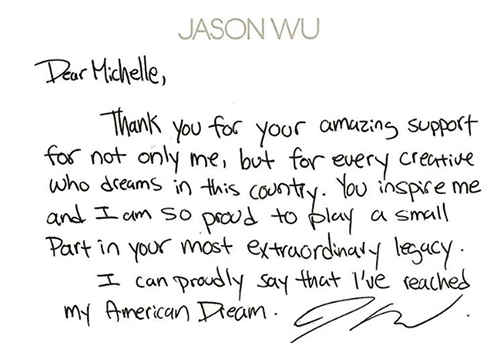 JASON WU
Dear Michelle,
Thank you for your amazing support
for not only me, but for every creative
who dreams in this country. You inspire me
and I am so proud to play a small
Part in your most extraordinary legacy.
I can proudly say that I've reached
my American Dream.